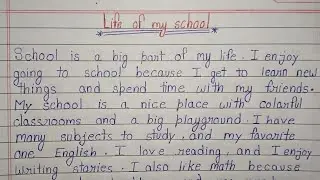 Life of my school
School is a big part of my life. I enjoy
going to school because I get to learn new
things and spend time with my friends.
My school is a nice place with colorful
classrooms and a big playground. I have
many subjects to study, and my favorite
one English. I love reading, and I enjoy
writing staries. I also like math because